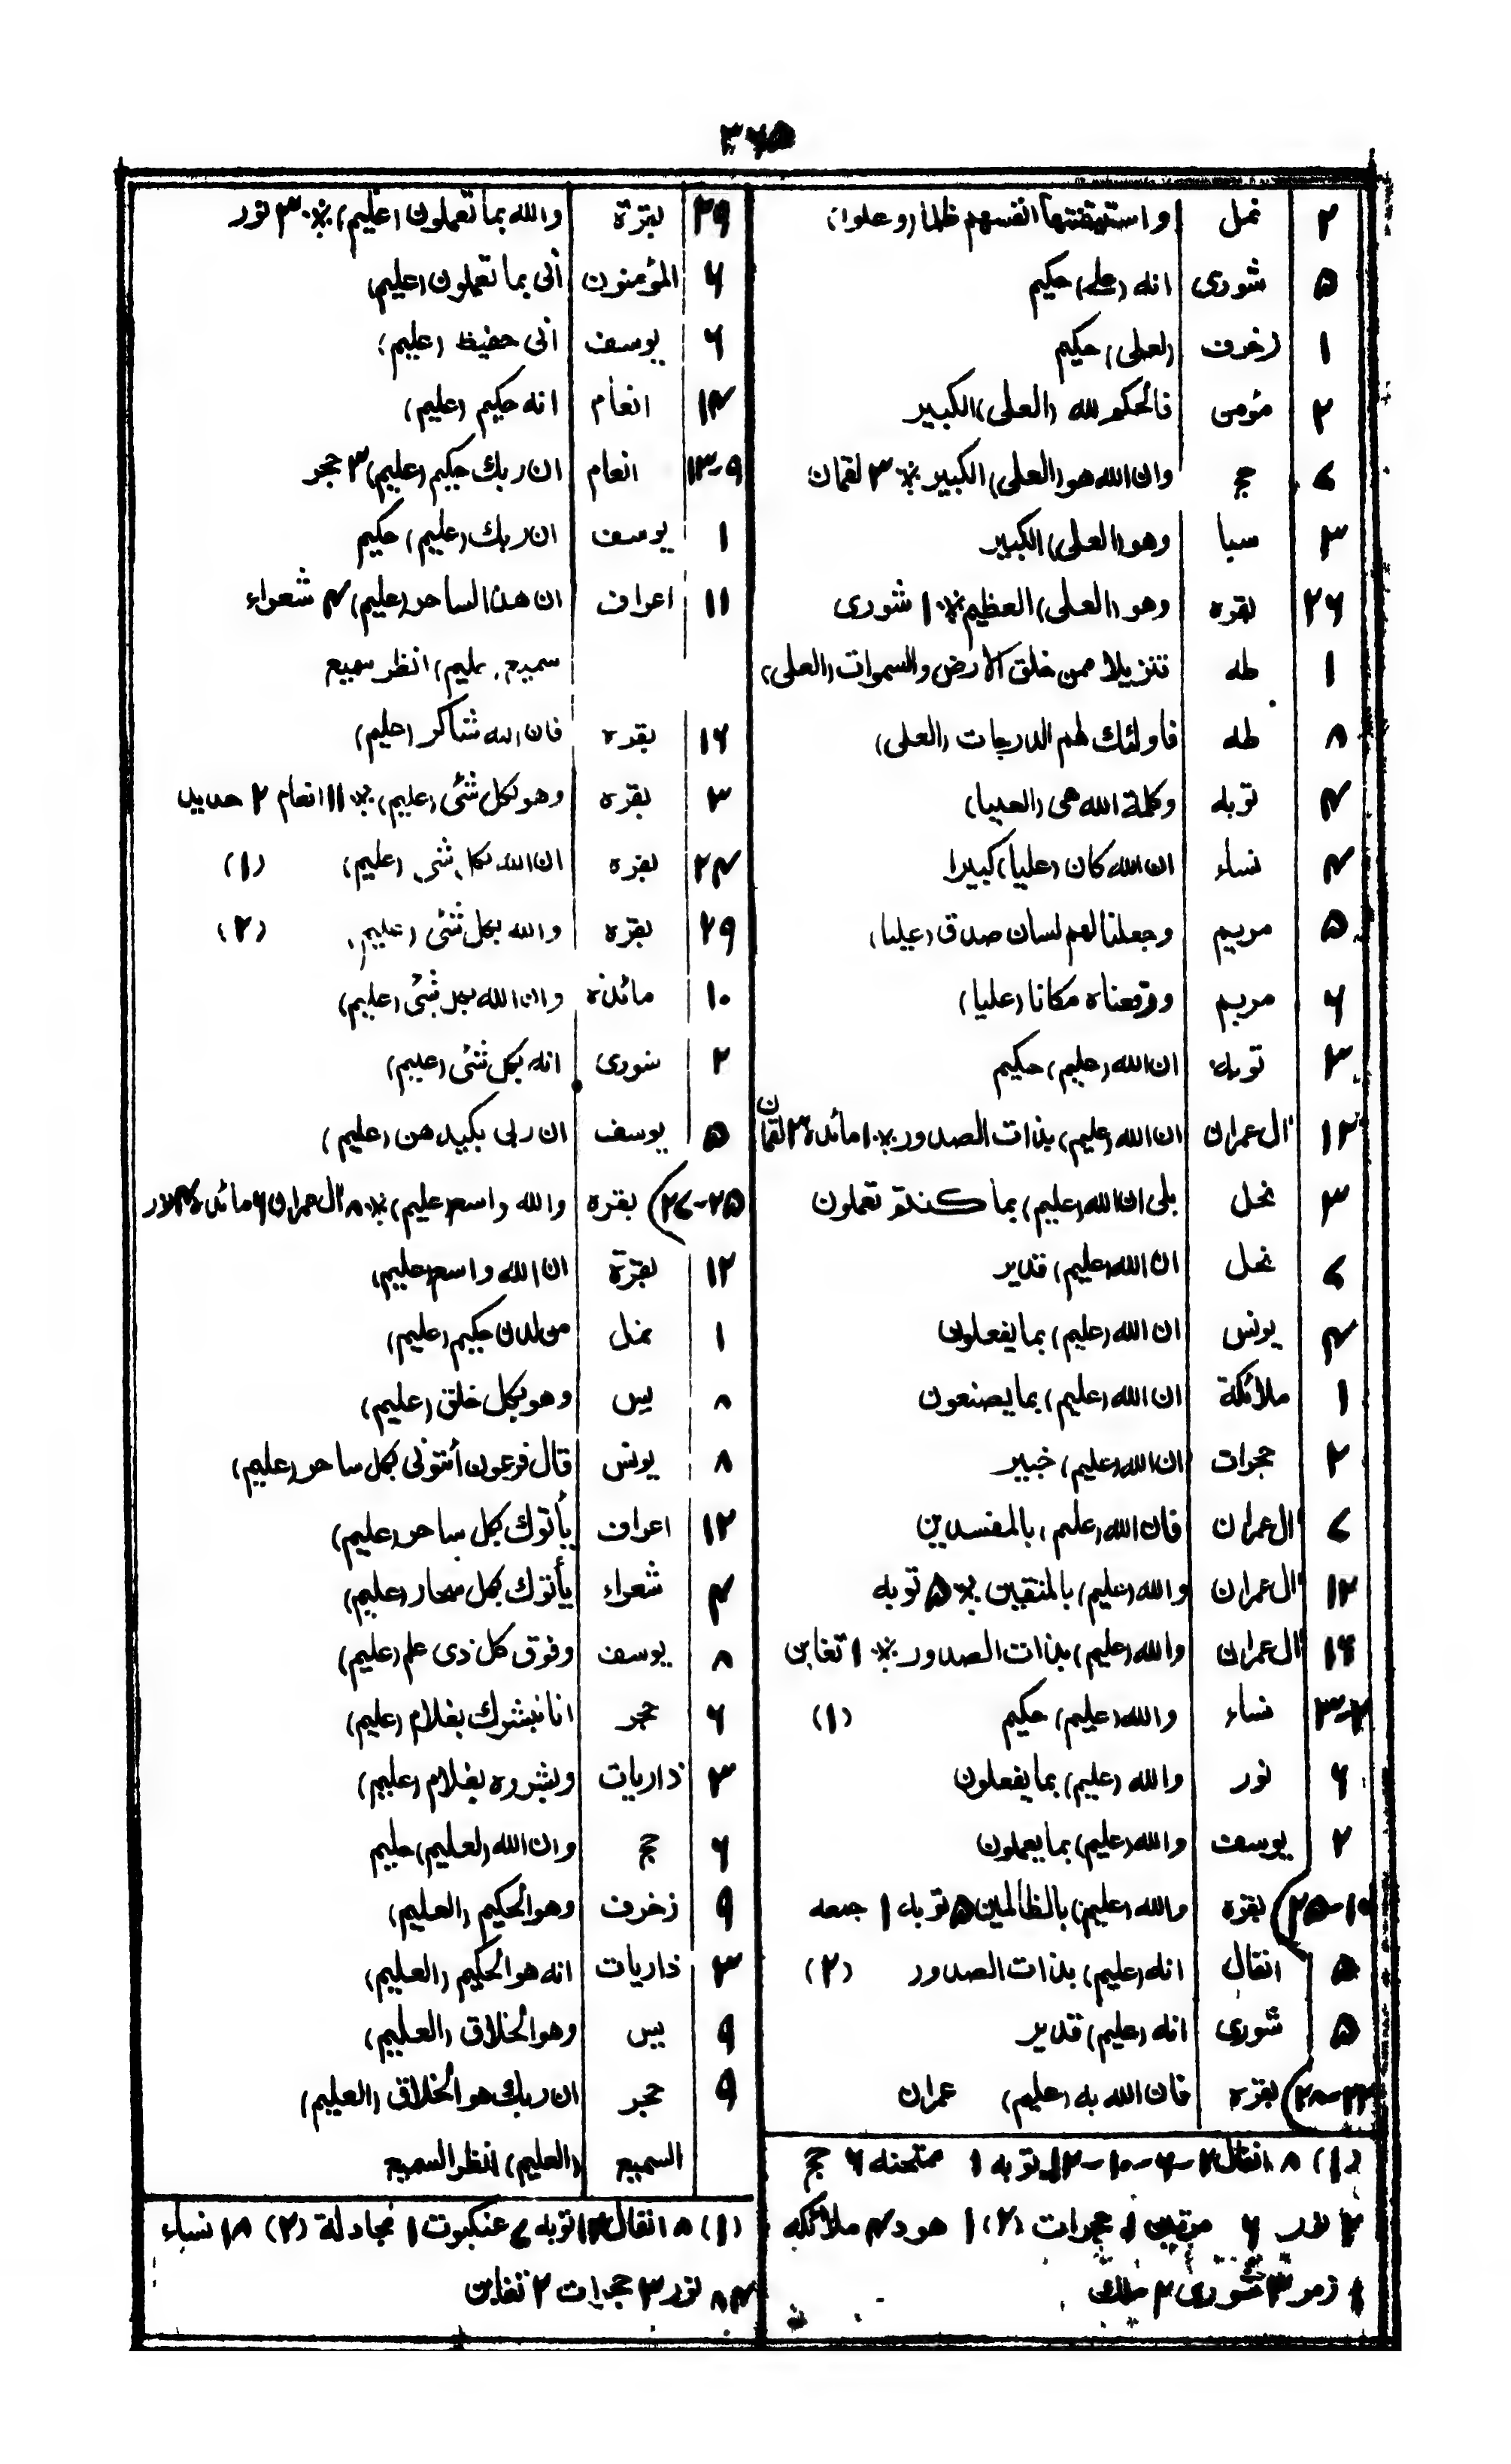 ۳۶۵
۲ نمل واستيقنتها انفسهم ظلما (وعلوا)
۵ شورى انه (على) حكيم
۱ زخرف (لعلى) حكيم
۲ مؤمن فالحكم لله (العلى) الكبير
۷ حج وان الله هو (العلى) الكبير ※ ۳ لقمان
۳ سبا وهو (العلى) الكبير
۲۶ بقره وهو (العلى) العظيم ※ ۱ شورى
۱ طه تنزيلا ممن خلق الارض والسموات (العلى)
۸ طه فاولئك لهم الدرجات (العلى)
۴ توبه وكلمة الله هى (العليا)
۴ نساء ان الله كان (عليا) كبيرا
۵ مريم وجعلنا لهم لسان صدق (عليا)
۶ مريم ورفعناه مكانا (عليا)
۳ توبه ان الله (عليم) حكيم
۱۲ ال عمران ان الله (عليم) بذات الصدور ※ ۱ مائده ۳ لقمان
۳ نحل بلى ان الله (عليم) بما كنتم تعملون
۷ نحل ان الله (عليم) قدير
۴ يونس ان الله (عليم) بما يفعلون
۱ ملائكة ان الله (عليم) بما يصنعون
۲ حجرات ان الله (عليم) خبير
۷ ال عمران فان الله (عليم) بالمفسدين
۱۲ ال عمران والله (عليم) بالمتقين ※ ۵ توبه
۱۶ ال عمران والله (عليم) بذات الصدور ※ ۱ تغابن
۳-۴ نساء والله (عليم) حكيم (۱)
۶ نور والله (عليم) بما يفعلون
۲ يوسف والله (عليم) بما يعملون
۱۰-۲۵) بقره والله (عليم) بالظالمين ۵ توبه ۱ جمعه
۵ انفال انه (عليم) بذات الصدور (۲)
۵ شورى انه (عليم) قدير
بقره فان الله به (عليم) عمران
(۱) ۸ انفال ۲-۶-۱۰-۱۲ توبه ۱ ممتحنه ۶ حج
۲ نور ۶ حجرات (۲) ۱ هود ۴ ملائكه
۱ زمر ۳ شورى ۲ ملك
۲۹ بقرة والله بما تعملون (عليم) ※ ۳ نور
۶ المؤمنون انى بما تعملون (عليم)
۶ يوسف انى حفيظ (عليم)
۱۴ انعام انه حكيم (عليم)
۹-۱۳ انعام ان ربك حكيم (عليم) ۳ حجر
۱ يوسف ان ربك (عليم) حكيم
۱۱ اعراف ان هذا لساحر (عليم) ۴ شعراء
سميع (عليم) انظر سميع
۱۶ بقره فان الله شاكر (عليم)
۳ بقره وهو بكل شئى (عليم) ※ ۱۱ انعام ۲ حديد
۲۴ بقره ان الله بكل شى (عليم) (۱)
۲۹ بقره والله بكل شئى (عليم) (۲)
۱۰ مائدة وان الله بكل شئى (عليم)
۲ شورى انه بكل شئى (عليم)
۵ يوسف ان ربى بكيدهن (عليم)
۲۵-۲۷) بقره والله واسع (عليم) ※ ۸ ال عمران ۶ مائدة ۴ نور
۱۲ بقرة ان الله واسع (عليم)
۱ نمل من لدن حكيم (عليم)
۸ يس وهو بكل خلق (عليم)
۸ يونس قال فرعون أئتونى بكل ساحر (عليم)
۱۲ اعراف يأتوك بكل ساحر (عليم)
۴ شعراء يأتوك بكل سحار (عليم)
۸ يوسف وفوق كل ذى علم (عليم)
۶ حجر انا نبشرك بغلام (عليم)
۳ ذاريات وبشروه بغلام (عليم)
۶ حج وان الله (لعليم) حليم
۹ زخرف وهو الحكيم (العليم)
۳ ذاريات انه هو الحكيم (العليم)
۹ يس وهو الخلاق (العليم)
۹ حجر ان ربك هو الخلاق (العليم)
السميع (العليم) انظر السميع
(۱) ۸ انفال ۱۴ توبه ۷ عنكبوت ۱ مجادلة (۲) ۱۸ نساء
۴ ۸ نور ۳ حجرات ۲ تغابن